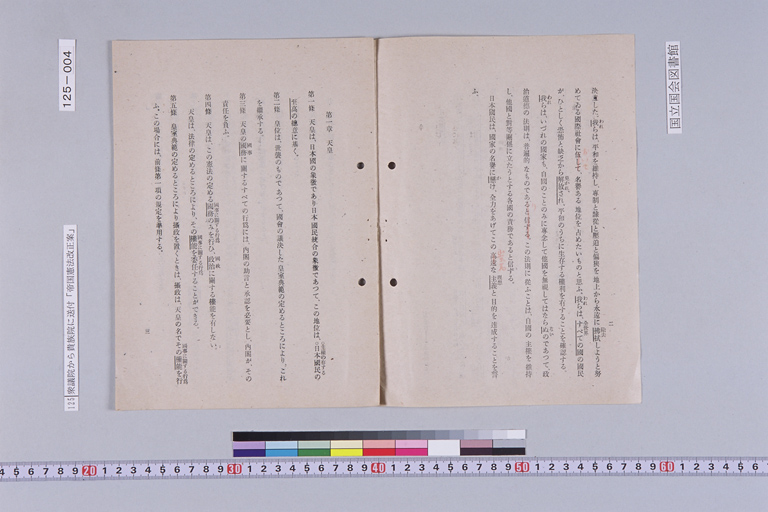 国立国会図書館
125-004
125 衆議院から貴族院に送付「帝国憲法改正案」
二
決意した。我らは、平和を維持し、專制と隷從と壓迫と偏狹を地上から永遠に拂拭しようと努
めてゐる國際社會に伍して、名譽ある地位を占めたいものと思ふ。我らは、すべての國の國民
が、ひとしく恐怖と缺乏から解放され、平和のうちに生存する權利を有することを確認する。
我らは、いづれの國家も、自國のことのみに專念して他國を無視してはならぬのであつて、政
治道德の法則は、普遍的なものであると信ずる。この法則に從ふことは、自國の主權を維持
し、他國と對等關係に立たうとする各國の責務であると信ずる。
日本國民は、國家の名譽に懸け、全力をあげてこの高遠な主義と目的を達成することを誓
ふ。
第一章 天皇
第一條 天皇は、日本國の象徵であり日本國民統合の象徵であつて、この地位は、日本國民の
至高の總意に基く。
主權の存する
第二條 皇位は、世襲のものであつて、國會の議決した皇室典範の定めるところにより、これ
を繼承する。
第三條 天皇の國務に關するすべての行爲には、內閣の助言と承認を必要とし、內閣が、その
國事
責任を負ふ。
第四條 天皇は、この憲法の定める國務のみを行ひ、政治に關する權能を有しない。
國事に關する行爲
國政
天皇は、法律の定めるところにより、その權能を委任することができる。
國事に關する行爲
第五條 皇室典範の定めるところにより攝政を置くときは、攝政は、天皇の名でその權能を行
國事に關する行爲
ふ。この場合には、前條第一項の規定を準用する。
三